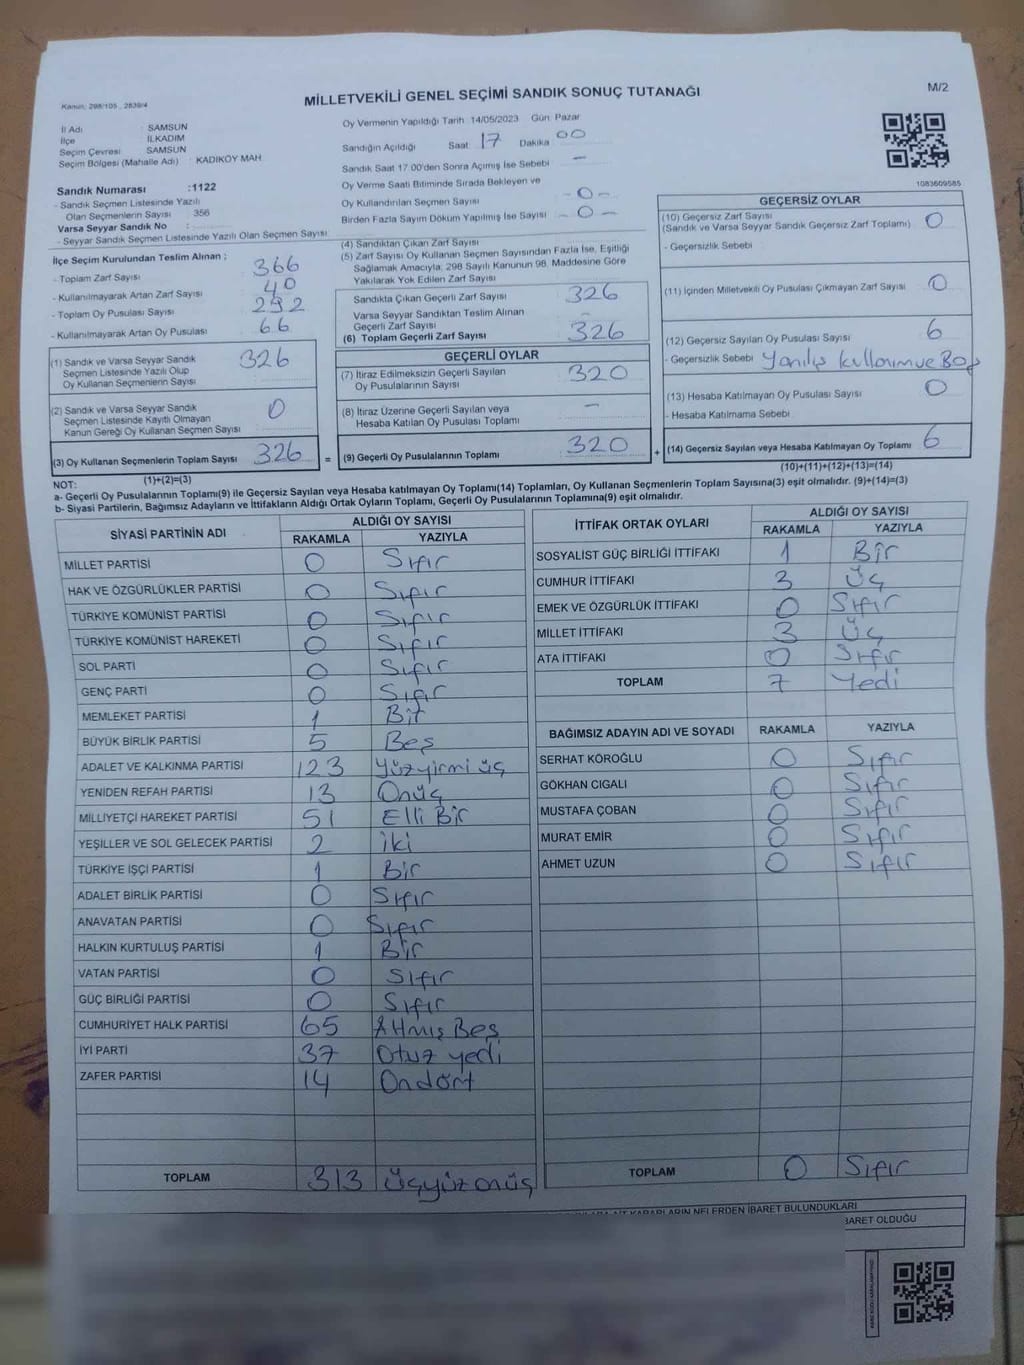 MİLLETVEKİLİ GENEL SEÇİMİ SANDIK SONUÇ TUTANAĞI
M/2
Kanun: 298/105 , 2839/4
İl Adı : SAMSUN
İlçe İLKADIM
Seçim Çevresi SAMSUN
Seçim Bölgesi (Mahalle Adı) : KADIKÖY MAH.
Sandık Numarası :1122
- Sandık Seçmen Listesinde Yazılı
Olan Seçmenlerin Sayısı 356
Varsa Seyyar Sandık No :
- Seyyar Sandık Seçmen Listesinde Yazılı Olan Seçmen Sayısı
Oy Vermenin Yapıldığı Tarih 14/05/2023 Gün Pazar
Sandığın Açıldığı Saat 17 Dakika 00
Sandık Saat 17.00'den Sonra Açılmış İse Sebebi -
Oy Verme Saati Bitiminde Sırada Bekleyen ve
Oy Kullandırılan Seçmen Sayısı - 0 -
Birden Fazla Sayım Döküm Yapılmış İse Sayısı - 0 -
1083609585
İlçe Seçim Kurulundan Teslim Alınan ;
- Toplam Zarf Sayısı 366
- Kullanılmayarak Artan Zarf Sayısı 40
- Toplam Oy Pusulası Sayısı 292
- Kullanılmayarak Artan Oy Pusulası 66
(1) Sandık ve Varsa Seyyar Sandık
Seçmen Listesinde Yazılı Olup
Oy Kullanan Seçmenlerin Sayısı 326
(2) Sandık ve Varsa Seyyar Sandık
Seçmen Listesinde Kayıtlı Olmayan
Kanun Gereği Oy Kullanan Seçmen Sayısı 0
(3) Oy Kullanan Seçmenlerin Toplam Sayısı 326 =
(1)+(2)=(3)
(4) Sandıktan Çıkan Zarf Sayısı
(5) Zarf Sayısı Oy Kullanan Seçmen Sayısından Fazla İse, Eşitliği
Sağlamak Amacıyla, 298 Sayılı Kanunun 98. Maddesine Göre
Yakılarak Yok Edilen Zarf Sayısı
Sandıkta Çıkan Geçerli Zarf Sayısı 326
Varsa Seyyar Sandıktan Teslim Alınan
Geçerli Zarf Sayısı -
(6) Toplam Geçerli Zarf Sayısı 326
GEÇERLİ OYLAR
(7) İtiraz Edilmeksizin Geçerli Sayılan
Oy Pusulalarının Sayısı 320
(8) İtiraz Üzerine Geçerli Sayılan veya
Hesaba Katılan Oy Pusulası Toplamı -
(9) Geçerli Oy Pusulalarının Toplamı 320 +
GEÇERSİZ OYLAR
(10) Geçersiz Zarf Sayısı
(Sandık ve Varsa Seyyar Sandık Geçersiz Zarf Toplamı) 0
- Geçersizlik Sebebi
(11) İçinden Milletvekili Oy Pusulası Çıkmayan Zarf Sayısı 0
(12) Geçersiz Sayılan Oy Pusulası Sayısı 6
- Geçersizlik Sebebi Yanlış kullanım ve Boş
(13) Hesaba Katılmayan Oy Pusulası Sayısı 0
- Hesaba Katılmama Sebebi
(14) Geçersiz Sayılan veya Hesaba Katılmayan Oy Toplamı 6
(10)+(11)+(12)+(13)=(14)
NOT:
a- Geçerli Oy Pusulalarının Toplamı(9) ile Geçersiz Sayılan veya Hesaba katılmayan Oy Toplamı(14) Toplamları, Oy Kullanan Seçmenlerin Toplam Sayısına(3) eşit olmalıdır. (9)+(14)=(3)
b- Siyasi Partilerin, Bağımsız Adayların ve İttifakların Aldığı Ortak Oyların Toplamı, Geçerli Oy Pusulalarının Toplamına(9) eşit olmalıdır.
SİYASİ PARTİNİN ADI ALDIĞI OY SAYISI
RAKAMLA YAZIYLA
MİLLET PARTİSİ 0 Sıfır
HAK VE ÖZGÜRLÜKLER PARTİSİ 0 Sıfır
TÜRKİYE KOMÜNİST PARTİSİ 0 Sıfır
TÜRKİYE KOMÜNİST HAREKETİ 0 Sıfır
SOL PARTİ 0 Sıfır
GENÇ PARTİ 0 Sıfır
MEMLEKET PARTİSİ 1 Bir
BÜYÜK BİRLİK PARTİSİ 5 Beş
ADALET VE KALKINMA PARTİSİ 123 Yüzyirmi üç
YENİDEN REFAH PARTİSİ 13 Onüç
MİLLİYETÇİ HAREKET PARTİSİ 51 Elli Bir
YEŞİLLER VE SOL GELECEK PARTİSİ 2 iki
TÜRKİYE İŞÇİ PARTİSİ 1 Bir
ADALET BİRLİK PARTİSİ 0 Sıfır
ANAVATAN PARTİSİ 0 Sıfır
HALKIN KURTULUŞ PARTİSİ 1 Bir
VATAN PARTİSİ 0 Sıfır
GÜÇ BİRLİĞİ PARTİSİ 0 Sıfır
CUMHURİYET HALK PARTİSİ 65 Atmış Beş
İYİ PARTİ 37 Otuz yedi
ZAFER PARTİSİ 14 Ondört
TOPLAM 313 üçyüzonüç
İTTİFAK ORTAK OYLARI ALDIĞI OY SAYISI
RAKAMLA YAZIYLA
SOSYALİST GÜÇ BİRLİĞİ İTTİFAKI 1 Bir
CUMHUR İTTİFAKI 3 Üç
EMEK VE ÖZGÜRLÜK İTTİFAKI 0 Sıfır
MİLLET İTTİFAKI 3 Üç
ATA İTTİFAKI 0 Sıfır
TOPLAM 7 Yedi
BAĞIMSIZ ADAYIN ADI VE SOYADI RAKAMLA YAZIYLA
SERHAT KÖROĞLU 0 Sıfır
GÖKHAN CIGALI 0 Sıfır
MUSTAFA ÇOBAN 0 Sıfır
MURAT EMİR 0 Sıfır
AHMET UZUN 0 Sıfır
TOPLAM 0 Sıfır
KARARLARIN NELERDEN İBARET BULUNDUKLARI
BARET OLDUĞU